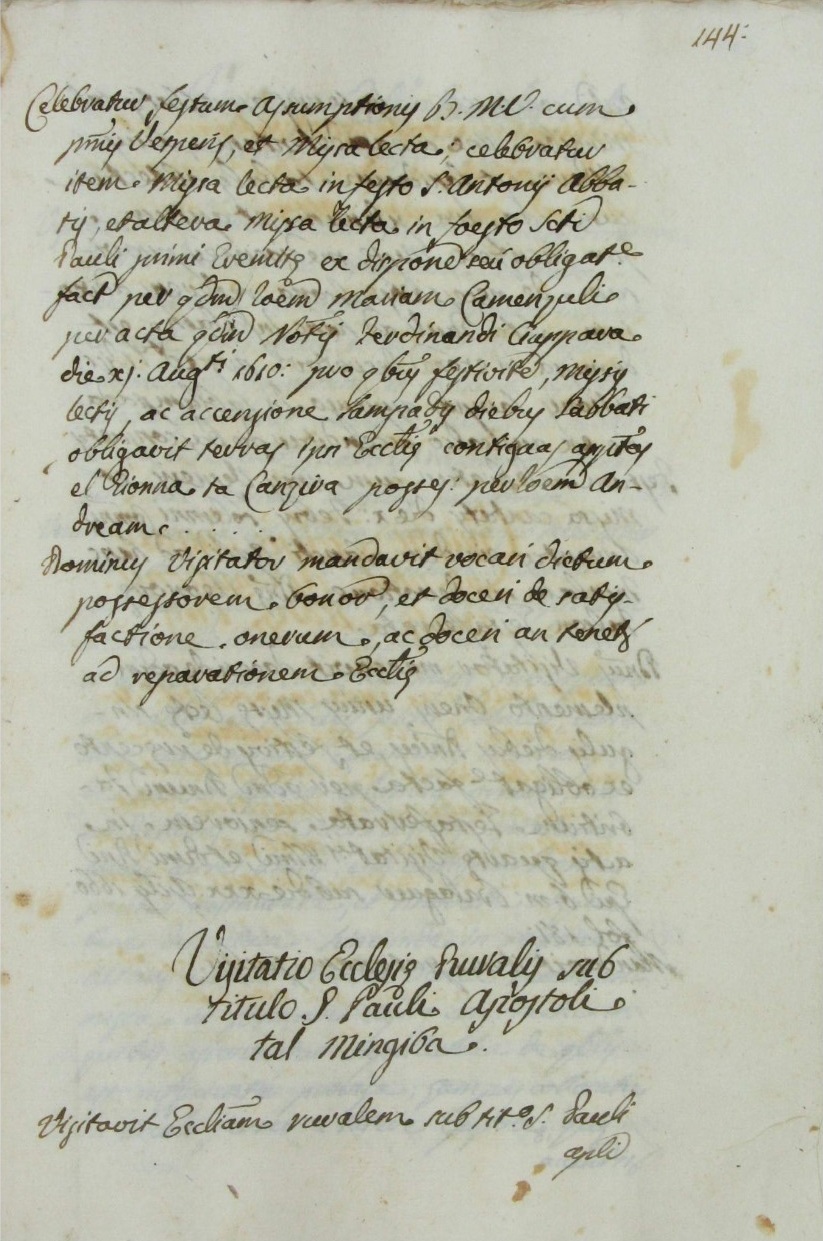 144:
Celebratur festum Assumptionis B. M. V. cum
pmis Vesperis, et Missa lecta; celebratur
item Missa lecta in festo S. Antonij Abba-
tis, et altera Missa lecta in foesto Scti
Pauli primi Eremitę ex dispone seu obligat.e
fact per qdm Ioem Mariam Camenzuli
per acta qdm Notij Ferdinandi Ciappara
die xj: Aug.ti 1610: pro qbus festivite, missis
lectis, ac accensione lampadis diebus Sabbati
obligavit terras ipsi Ecclię contiguas
el Gionna ta Canzira posses: per Ioem An-
dream. . . . . .
Dominus Visitator mandavit vocari dictum
possessorem bonor, et doceri de satis-
factione onerum, ac doceri an tenet
ad reparationem Ecclię
Visitatio Ecclesię Ruralis sub
titulo S. Pauli Apostoli
tal Mingiba.
Visitavit Eccliam ruralem sub tit.o S. Pauli
apli